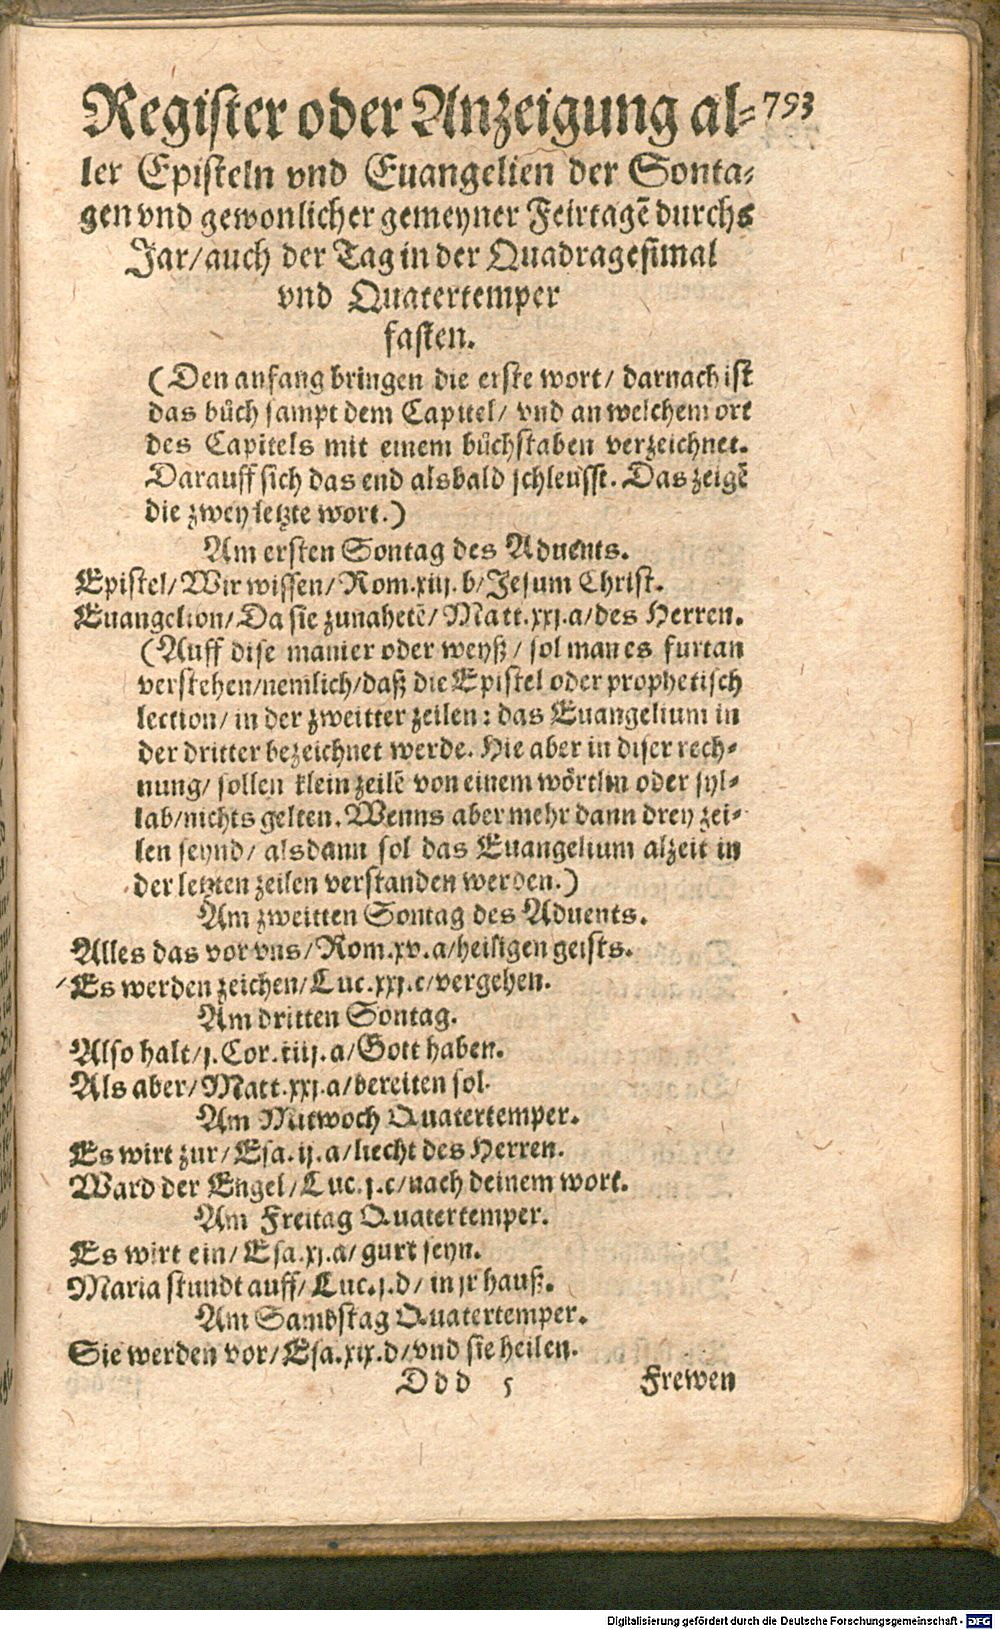 Register oder Anzeigung al- 793
ler Episteln vnd Euangelien der Sonta-
gen vnd gewonlicher gemeyner Feirtagẽ durchs
Jar/ auch der Tag in der Quadragesimal
vnd Quatertemper
fasten.
(Den anfang bringen die erste wort/ darnach ist
das bůch sampt dem Capitel/ vnd an welchem ort
des Capitels mit einem bůchstaben verzeichnet.
Darauff sich das end alsbald schleusst. Das zeigẽ
die zwey letzte wort.)
Am ersten Sontag des Aduents.
Epistel/ Wir wissen/ Rom.xiij.b/ Jesum Christ.
Euangelion/ Da sie zunahetẽ/ Matt.xxj.a/ des Herren.
(Auff dise manier oder weyß/ sol man es furtan
verstehen/ nemlich/ daß die Epistel oder prophetisch
lection/ in der zweitter zeilen: das Euangelium in
der dritter bezeichnet werde. Hie aber in diser rech-
nung/ sollen klein zeilẽ von einem wörtlin oder syl-
lab/ nichts gelten. Wenns aber mehr dann drey zei-
len seynd/ alsdann sol das Euangelium alzeit in
der letzten zeilen verstanden werden.)
Am zweitten Sontag des Aduents.
Alles das vor vns/ Rom.xv.a/ heiligen geists.
Es werden zeichen/ Luc.xxj.c/ vergehen.
Am dritten Sontag.
Also halt/ j.Cor.iiij.a/ Gott haben.
Als aber/ Matt.xxj.a/ bereiten sol.
Am Mitwoch Quatertemper.
Es wirt zur/ Esa.ij.a/ liecht des Herren.
Ward der Engel/ Luc.j.c/ nach deinem wort.
Am Freitag Quatertemper.
Es wirt ein/ Esa.xj.a/ gurt seyn.
Maria stundt auff/ Luc.j.d/ in jr hauß.
Am Sambstag Quatertemper.
Sie werden vor/ Esa.xix.d/ vnd sie heilen.
Ddd 5 Frewen
Digitalisierung gefördert durch die Deutsche Forschungsgemeinschaft - DFG